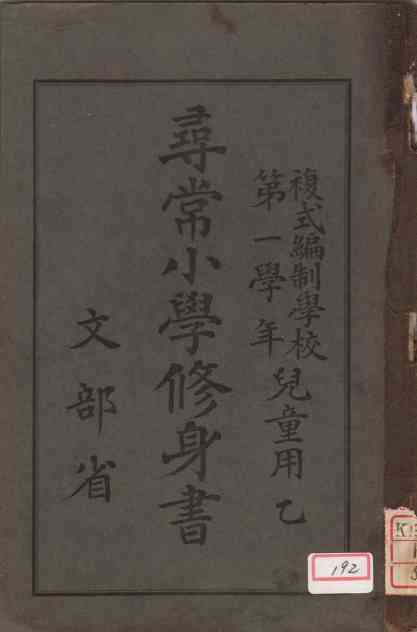 複式編制學校
第一學年
兒童用 乙
尋常小學修身書
文部省
192
K